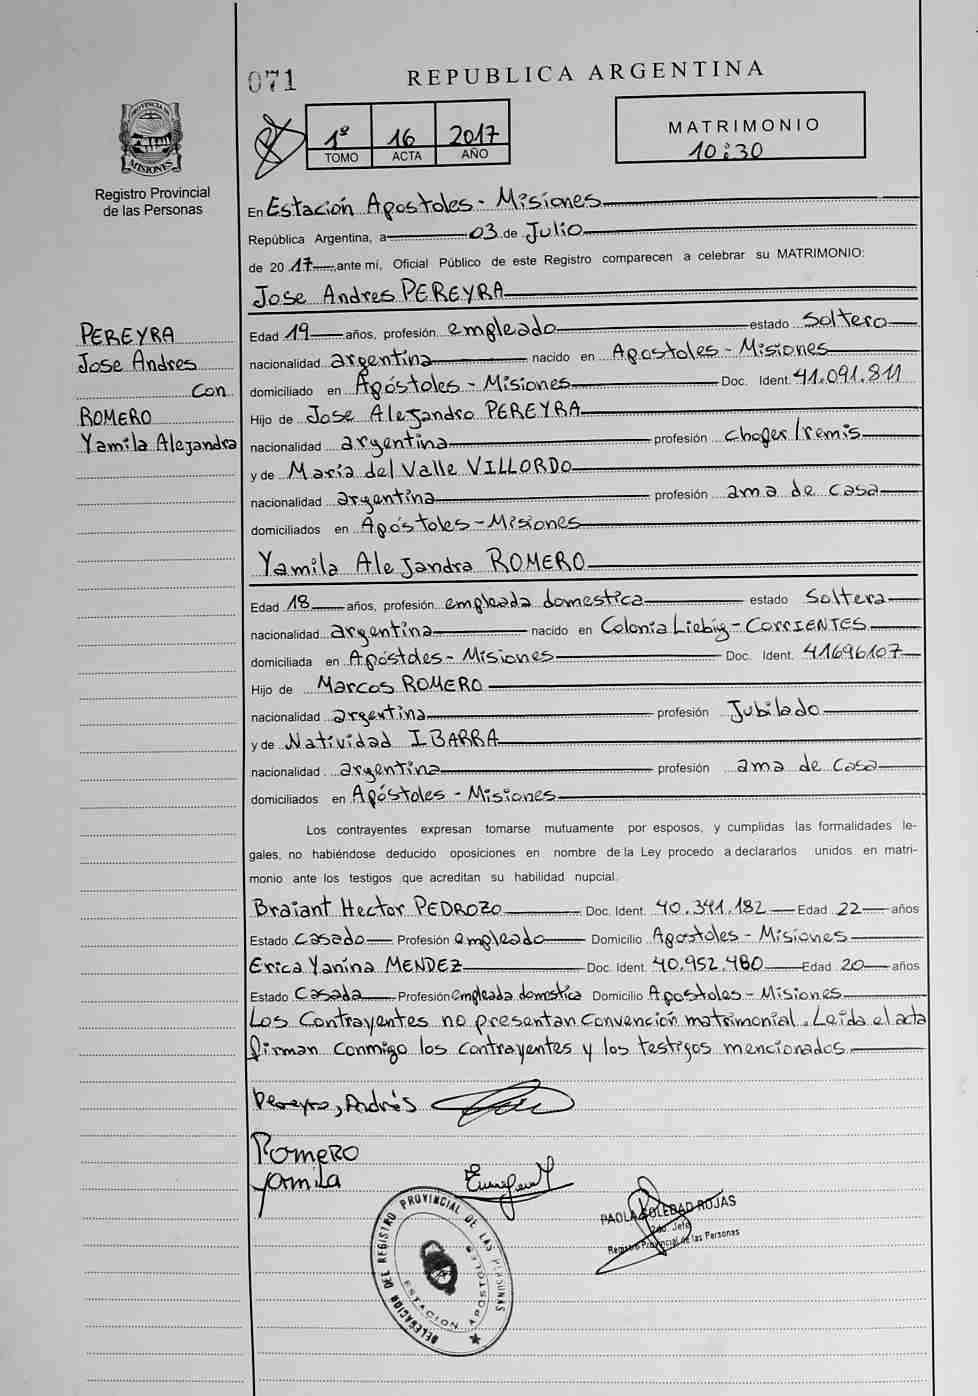 071
REPUBLICA ARGENTINA
PROVINCIA DE
MISIONES
Registro Provincial
de las Personas
1º 16 2017
TOMO ACTA AÑO
MATRIMONIO
10:30
En Estación Apostoles - Misiones
República Argentina, a 03 de Julio
de 2017, ante mí, Oficial Público de este Registro comparecen a celebrar su MATRIMONIO:
Jose Andres PEREYRA
PEREYRA
Jose Andres
Con
ROMERO
Yamila Alejandra
Edad 19 años, profesión empleado estado Soltero
nacionalidad argentina nacido en Apostoles - Misiones
domiciliado en Apóstoles - Misiones Doc. Ident. 41.091.811
Hijo de Jose Alejandro PEREYRA
nacionalidad argentina profesión chofer/remis
y de María del Valle VILLORDO
nacionalidad argentina profesión ama de casa
domiciliados en Apóstoles - Misiones
Yamila Alejandra ROMERO
Edad 18 años, profesión empleada domestica estado Soltera
nacionalidad argentina nacido en Colonia Liebig - CORRIENTES
domiciliada en Apóstoles - Misiones Doc. Ident. 41696107
Hijo de Marcos ROMERO
nacionalidad argentina profesión Jubilado
y de Natividad IBARRA
nacionalidad argentina profesión ama de casa
domiciliados en Apóstoles - Misiones
Los contrayentes expresan tomarse mutuamente por esposos, y cumplidas las formalidades le-
gales, no habiéndose deducido oposiciones en nombre de la Ley procedo a declararlos unidos en matri-
monio ante los testigos que acreditan su habilidad nupcial.
Braiant Hector PEDROZO Doc. Ident. 40.341.182 Edad 22 años
Estado Casado Profesión empleado Domicilio Apostoles - Misiones
Erica Yanina MENDEZ Doc. Ident. 40.952.480 Edad 20 años
Estado Casada Profesión empleada domestica Domicilio Apostoles - Misiones
Los Contrayentes no presentan Convención matrimonial. Leida el acta
firman conmigo los contrayentes y los testigos mencionados.
Pereyra, Andrés
Romero
Yamila
PAOLA SOLEDAD ROJAS
2do. Jefe
Registro Provincial de las Personas
DELEGACION DEL REGISTRO PROVINCIAL DE LAS PERSONAS
ESTACION APOSTOLES